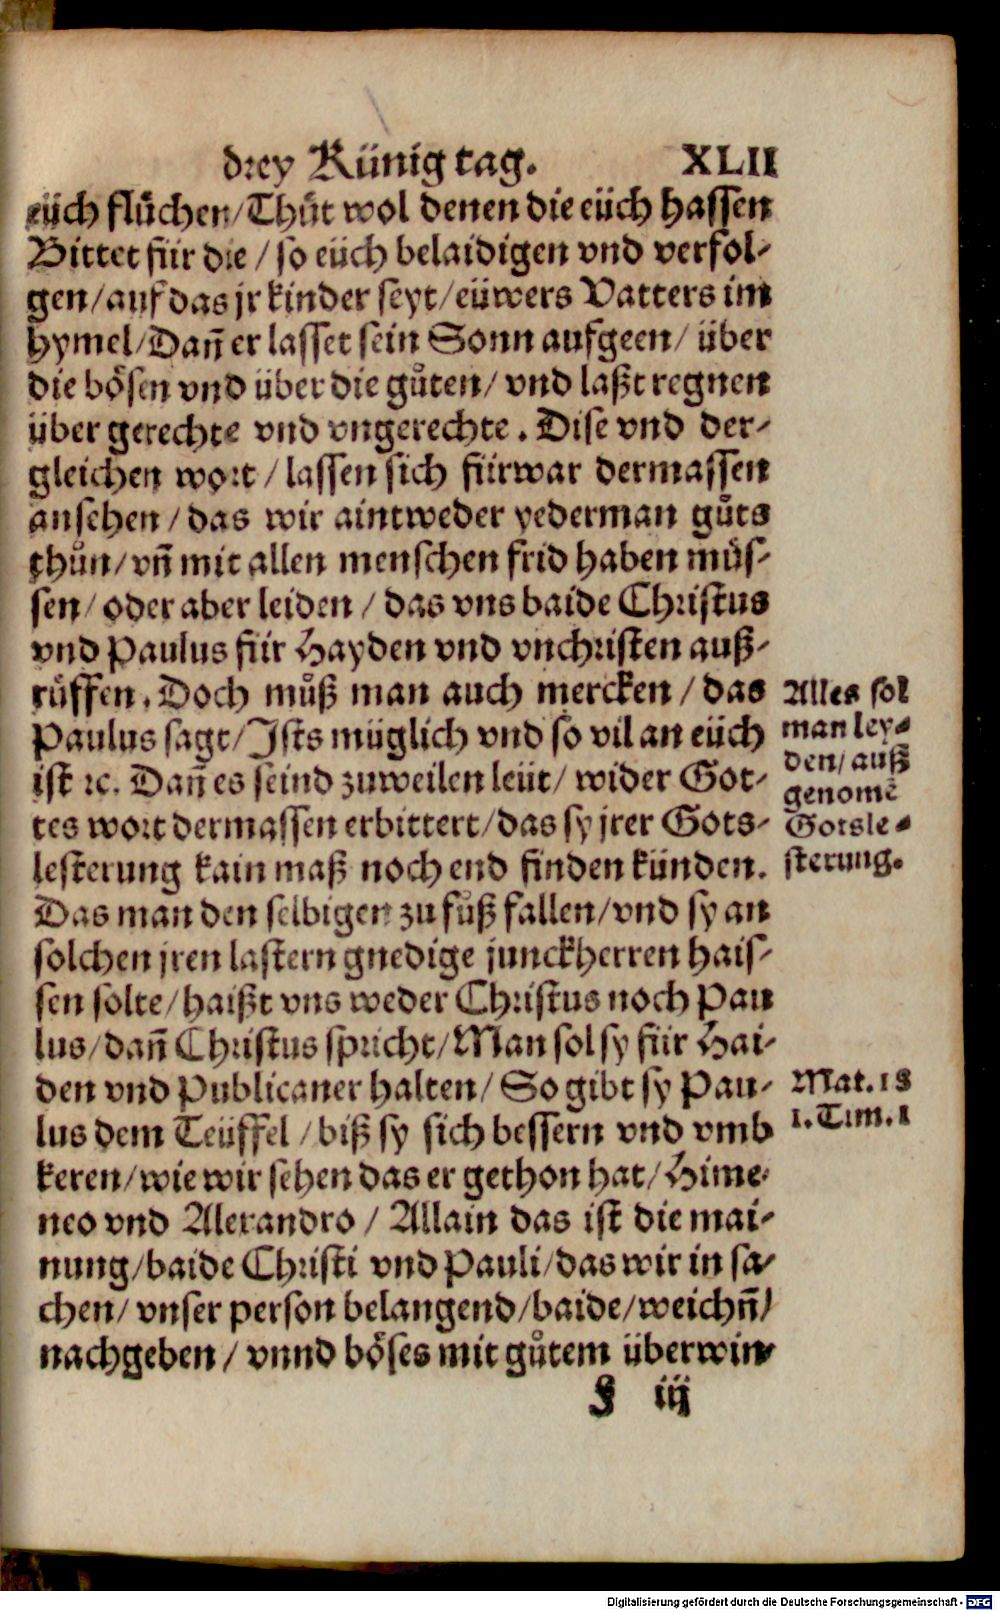 drey Künig tag. XLII
eüch flůchen/Thůt wol denen die eüch hassen
Bittet für die / so eüch belaidigen vnd verfol-
gen/auf das jr kinder seyt/eüwers Vatters im
hymel/Dañ er lasset sein Sonn aufgeen/ über
die bösen vnd über die gůten/ vnd laßt regnen
über gerechte vnd vngerechte. Dise vnd der-
gleichen wort / lassen sich fürwar dermassen
ansehen / das wir aintweder yederman gůts
thůn/ vñ mit allen menschen frid haben müs-
sen/ oder aber leiden / das vns baide Christus
vnd Paulus für Hayden vnd vnchristen auß-
rüffen. Doch můß man auch mercken / das
Paulus sagt/ Ists müglich vnd so vil an eüch
ist ꝛc. Dañ es seind zuweilen leüt/ wider Got-
tes wort dermassen erbittert/das sy jrer Gots-
lesterung kain maß noch end finden künden.
Das man den selbigen zu fůß fallen/vnd sy an
solchen jren lastern gnedige junckherren hais-
sen solte/haißt vns weder Christus noch Pau
lus/dañ Christus spricht/Man sol sy für Hai-
den vnd Publicaner halten/ So gibt sy Pau-
lus dem Teüffel / biß sy sich bessern vnd vmb
keren/wie wir sehen das er gethon hat/ Hime-
neo vnd Alexandro / Allain das ist die mai-
nung/baide Christi vnd Pauli/das wir in sa-
chen/ vnser person belangend/baide/weichñ/
nachgeben / vnnd böses mit gůtem überwin-
F iij
Alles sol
man ley-
den/ auß
genomẽ
Gotsle-
sterung.
Mat. 18
1. Tim. 1
Digitalisierung gefördert durch die Deutsche Forschungsgemeinschaft - DFG